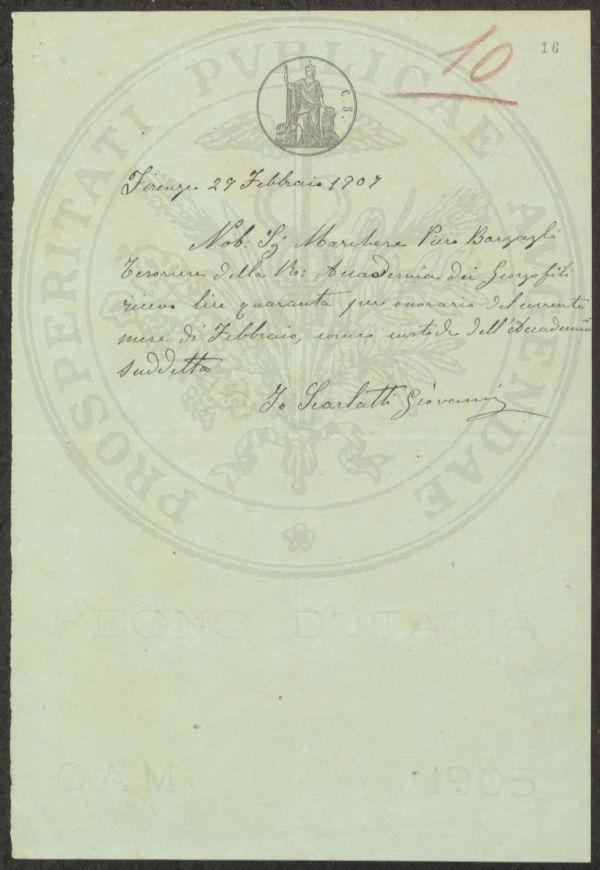 10
16
C. 5.
Firenze 27 Febbraio 1907
Nob: Sig Marchese Piero Bargagli
Tesoriere della R: Accademia dei Georgofili
ricevo lire quaranta per onorario del corrente
mese di Febbraio, come custode dell'Accademia
suddetta
Io Scarlatti Giovanni
PROSPERITATI PVBLICAE AVGENDAE
REGNO D'ITALIA
GAM 1905